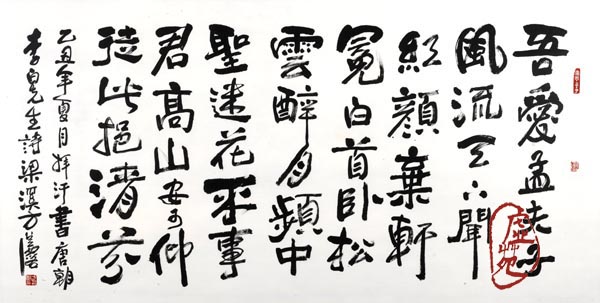 吾愛孟夫子
風流天下聞
紅顏棄軒
冕白首卧松
雲醉月頻中
聖迷花不事
君高山安可仰
徒此挹清芬
乙丑年夏月揮汗書唐朝
李白先生詩梁溪方